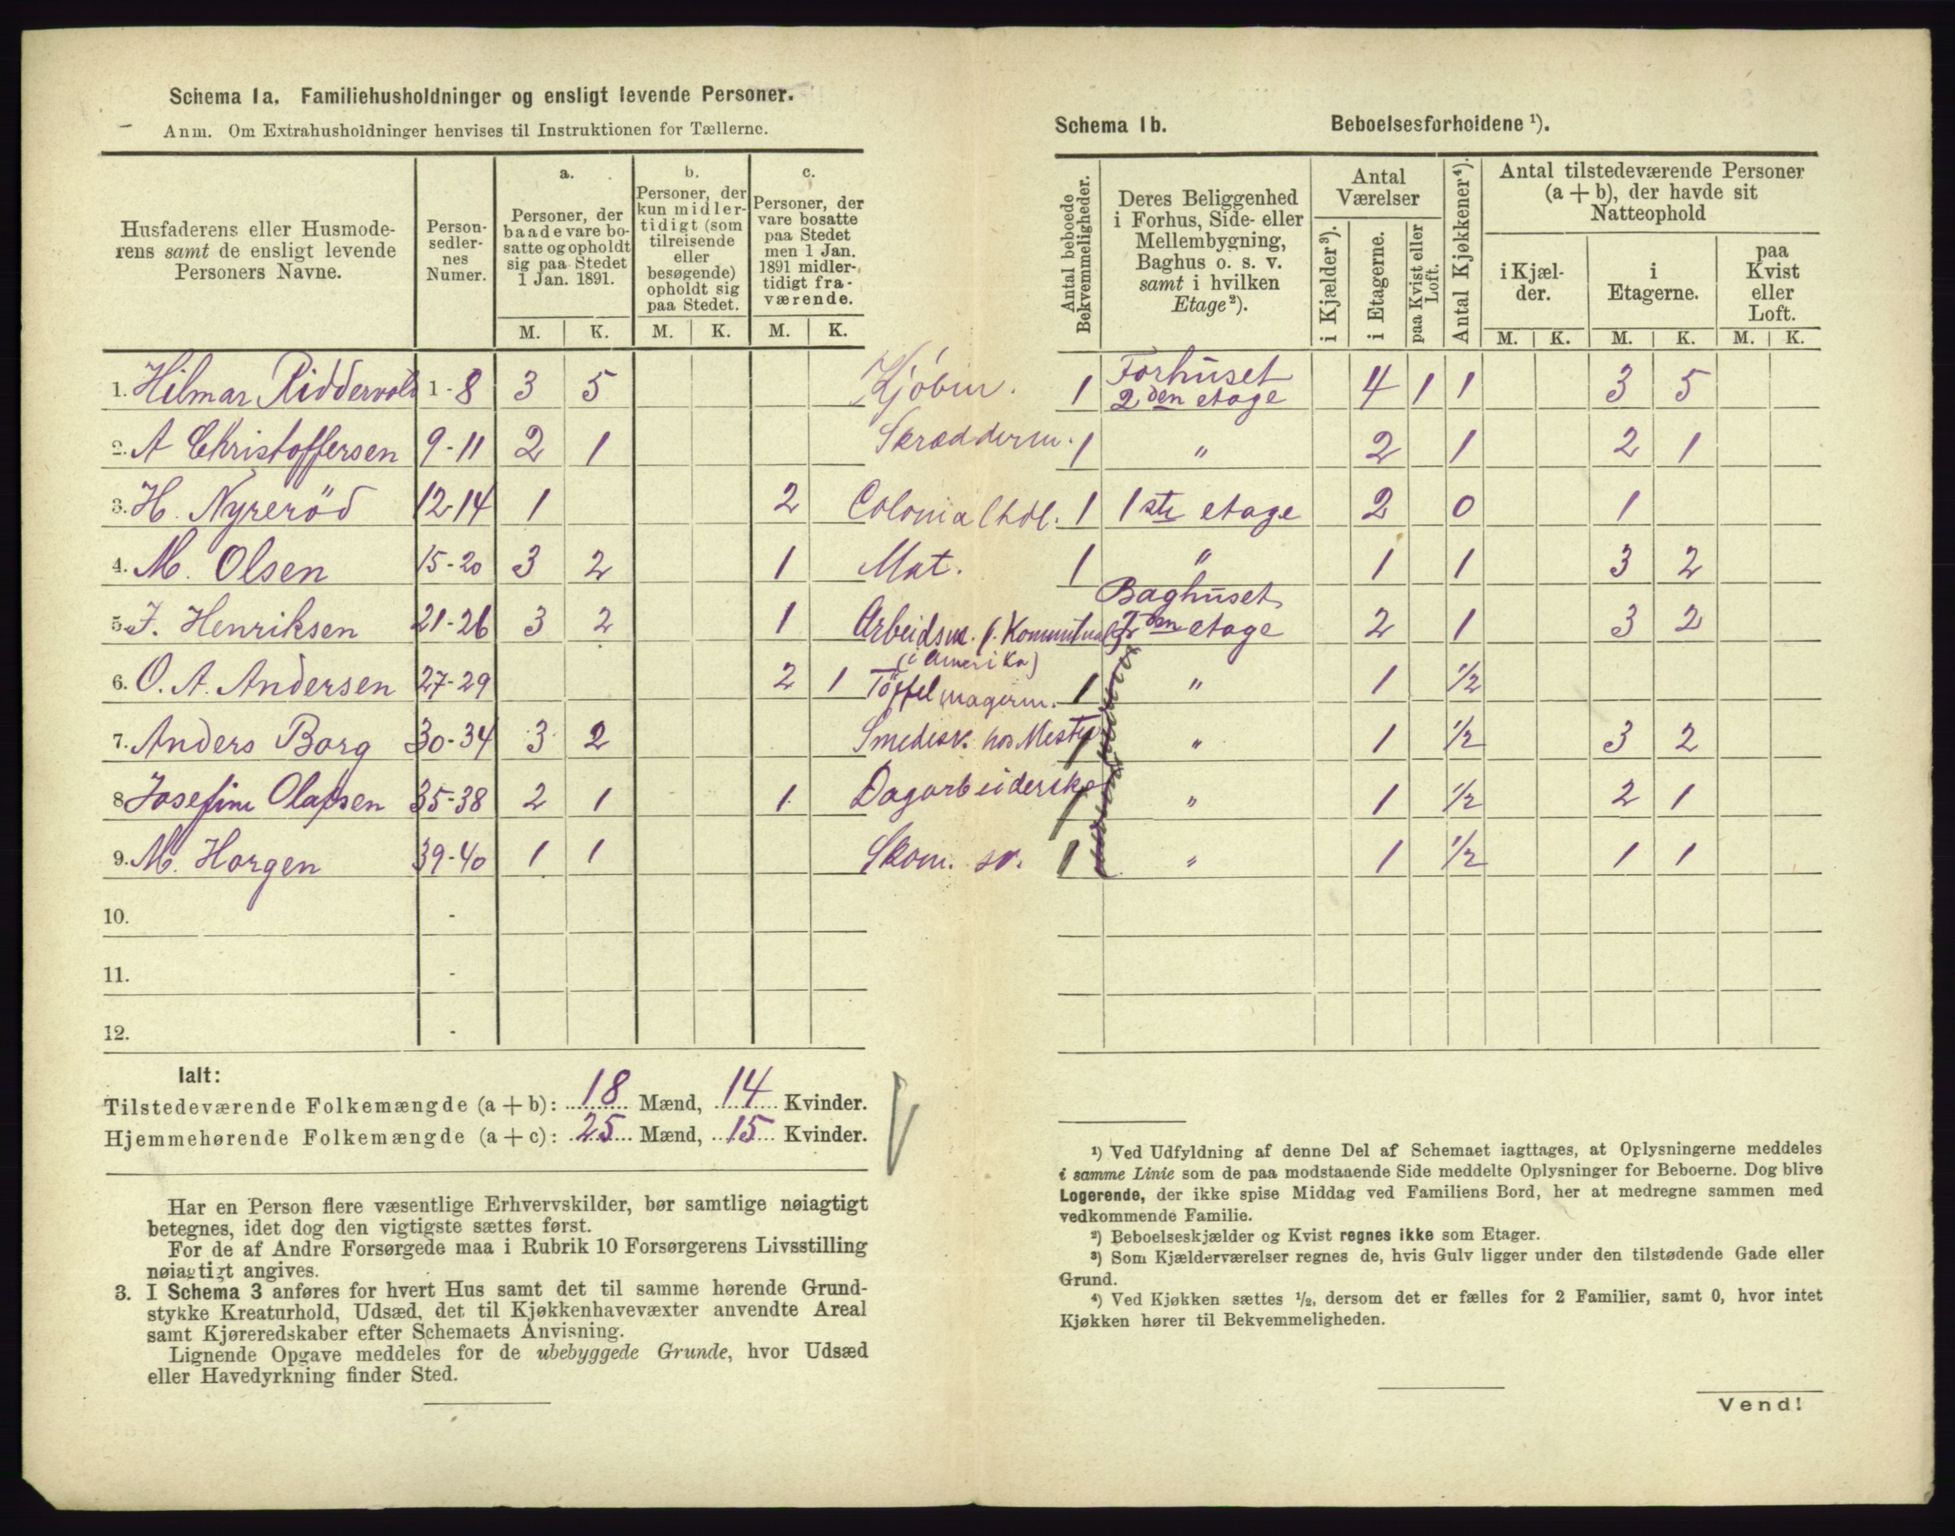 Schema 1a. Familiehusholdninger og ensligt levende Personer.
Anm. Om Extrahusholdninger henvises til Instruktionen for Tællerne.
Husfaderens eller Husmoderens samt de ensligt levende Personers Navne.
Personsedlernes Numer.
a. Personer, der baade vare bosatte og opholdt sig paa Stedet 1 Jan. 1891.
b. Personer, der kun midlertidigt (som tilreisende eller besøgende) opholdt sig paa Stedet.
c. Personer, der vare bosatte paa Stedet men 1 Jan. 1891 midlertidigt fraværende.
M. K. M. K. M. K.
1. Hilmar Riddervold 1-8 3 5 Kjøbm.
2. A Christoffersen 9-11 2 1 Skrædderm.
3. H. Nyrerød 12-14 1 2 Colonialhdl.
4. M. Olsen 15-20 3 2 1 Mat.
5. J. Henriksen 21-26 3 2 1 Arbeidsm. f. Kommunal
(i Amerika)
6. O. A. Andersen 27-29 2 1 Töffelmagerm.
7. Anders Borg 30-34 3 2 Smedesv. hos Mester
8. Josefine Olafsen 35-38 2 1 1 Dagarbeiderske
9. M. Horgen 39-40 1 1 Skom. sv.
10. -
11. -
12. -
Ialt:
Tilstedeværende Folkemængde (a + b): 18 Mænd, 14 Kvinder.
Hjemmehørende Folkemængde (a + c): 25 Mænd, 15 Kvinder.
Har en Person flere væsentlige Erhvervskilder, bør samtlige nøiagtigt
betegnes, idet dog den vigtigste sættes først.
For de af Andre Forsørgede maa i Rubrik 10 Forsørgerens Livsstilling
nøiagtigt angives.
3. I Schema 3 anføres for hvert Hus samt det til samme hørende Grund-
stykke Kreaturhold, Udsæd, det til Kjøkkenhavevæxter anvendte Areal
samt Kjøreredskaber efter Schemaets Anvisning.
Lignende Opgave meddeles for de ubebyggede Grunde, hvor Udsæd
eller Havedyrkning finder Sted.
Schema 1b. Beboelsesforholdene ¹).
Antal beboede Bekvemmeligheder.
Deres Beliggenhed i Forhus, Side- eller Mellembygning, Baghus o. s. v. samt i hvilken Etage²).
Antal Værelser
i Kjælder³).
i Etagerne.
paa Kvist eller Loft.
Antal Kjøkkener⁴).
Antal tilstedeværende Personer (a + b), der havde sit Natteophold
i Kjælder.
i Etagerne.
paa Kvist eller Loft.
M. K. M. K. M. K.
1 Forhuset 2den etage 4 1 1 3 5
1 " 2 1 2 1
1 1ste etage 2 0 1
1 " 1 1 3 2
Baghuset 2den etage 2 1 3 2
1 " 1 ½
1 " 1 ½ 3 2
1 " 1 ½ 2 1
1 " 1 ½ 1 1
¹) Ved Udfyldning af denne Del af Schemaet iagttages, at Oplysningerne meddeles
i samme Linie som de paa modstaaende Side meddelte Oplysninger for Beboerne. Dog blive
Logerende, der ikke spise Middag ved Familiens Bord, her at medregne sammen med
vedkommende Familie.
²) Beboelseskjælder og Kvist regnes ikke som Etager.
³) Som Kjælderværelser regnes de, hvis Gulv ligger under den tilstødende Gade eller
Grund.
⁴) Ved Kjøkken sættes ½, dersom det er fælles for 2 Familier, samt 0, hvor intet
Kjøkken hører til Bekvemmeligheden.
Vend!